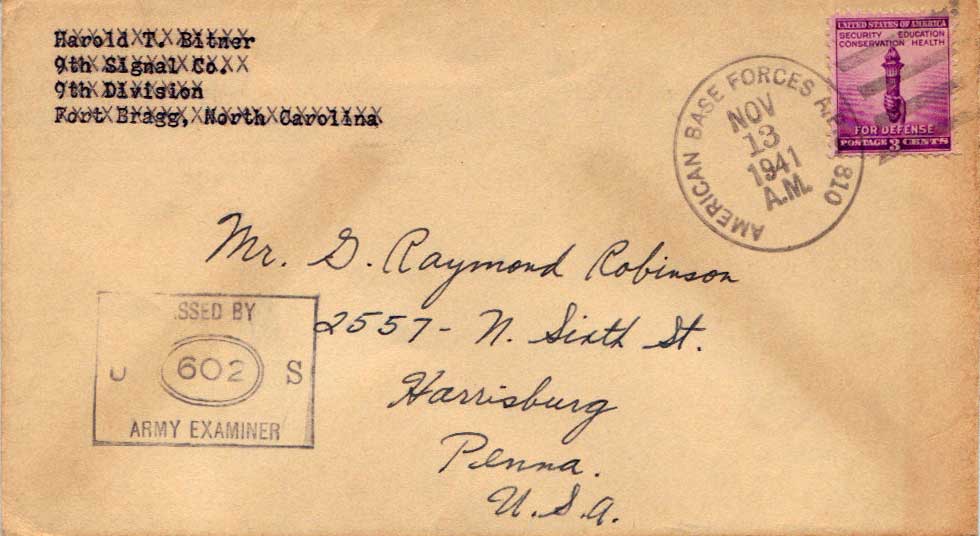 Harold T. Bitner
9th Signal Co.
9th Division
Fort Bragg, North Carolina
UNITED STATES OF AMERICA
SECURITY EDUCATION
CONSERVATION HEALTH
FOR DEFENSE
POSTAGE 3 CENTS
AMERICAN BASE FORCES 810
NOV
13
1941
A.M.
Mr. G. Raymond Robinson
2557- N. Sixth St.
Harrisburg
Penna.
U.S.A.
SSED BY
U 602 S
ARMY EXAMINER